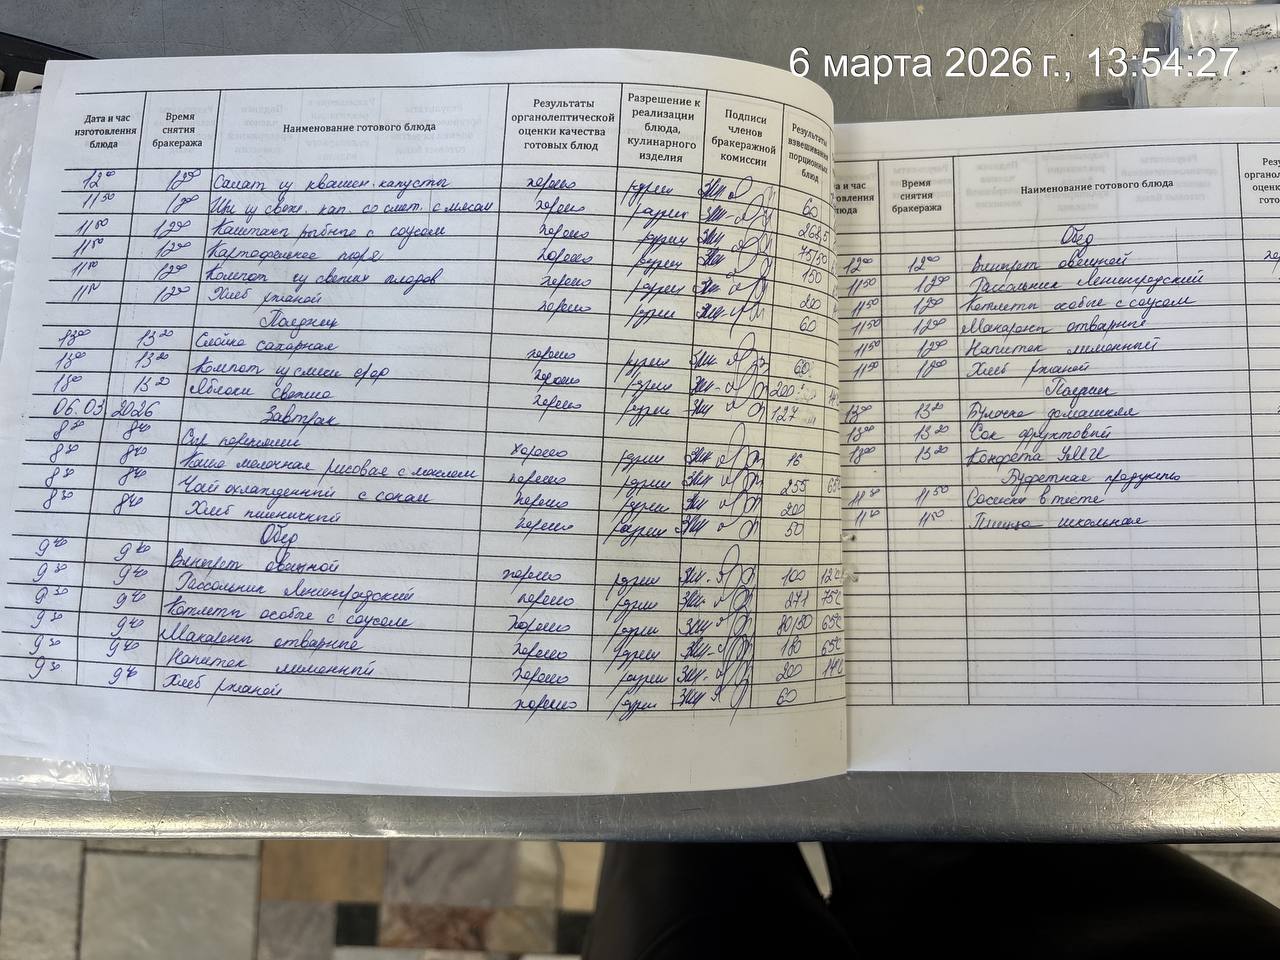 6 марта 2026 г., 13:54:27
Дата и час изготовления блюда | Время снятия бракеража | Наименование готового блюда | Результаты органолептической оценки качества готовых блюд | Разрешение к реализации блюда, кулинарного изделия | Подписи членов бракеражной комиссии | Результаты взвешивания порционных блюд
12 00 12 00 Салат из квашен. капусты хорошо 60
11 50 12 00 Щи из свеж. кап. со смет. с мясом хорошо
11 50 12 00 Каштаны рыбные с соусом хорошо 75/50
11 50 12 00 Картофельное пюре хорошо 150
11 50 12 00 Компот из свежих плодов хорошо 200
11 50 12 00 Хлеб ржаной хорошо 60
Полдник
13 00 13 20 Слойка сахарная хорошо 60
13 00 13 20 Компот из смеси сухофр хорошо 200
13 00 13 20 Яблоки свежие хорошо 127
06.03 2026 Завтрак
8 30 8 40 Сыр порциями хорошо 16
8 30 8 40 Каша молочная рисовая с маслом хорошо 255 65
8 30 8 40 Чай охлажденный с соком хорошо 200
8 30 8 40 Хлеб пшеничный хорошо 50
Обед
9 30 9 40 Винегрет овощной хорошо 100 12
9 30 9 40 Рассольник Ленинградский хорошо 271 75°C
9 30 9 40 Котлеты особые с соусом хорошо 80/50 65°C
9 30 9 40 Макароны отварные хорошо 180 65°C
9 30 9 40 Напиток лимонный хорошо 200 14°C
9 30 9 40 Хлеб ржаной хорошо 60
Время снятия бракеража | Наименование готового блюда
Обед
12 00 12 00 Винегрет овощной
11 50 12 00 Рассольник Ленинградский
11 50 12 00 Котлеты особые с соусом
11 50 12 00 Макароны отварные
11 50 12 00 Напиток лимонный
11 50 12 00 Хлеб ржаной
Полдник
13 00 13 20 Булочка домашняя
13 00 13 20 Сок фруктовый
13 00 13 20 Конфета
Буфетная продукция
11 30 11 50 Сосиска в тесте
11 50 Пицца школьная